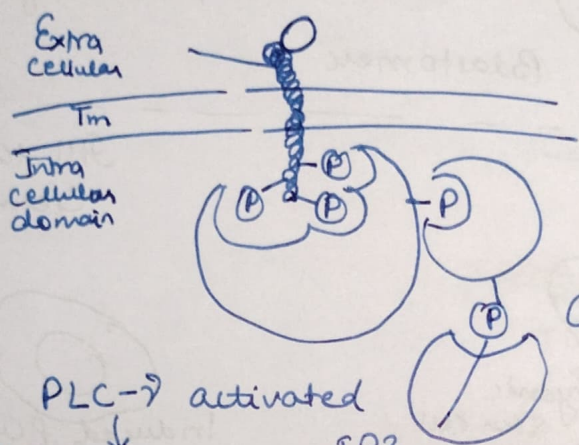 Extra
cellular
Tm
Intra
cellular
domain
P
P
P
P
P
PLC-γ activated